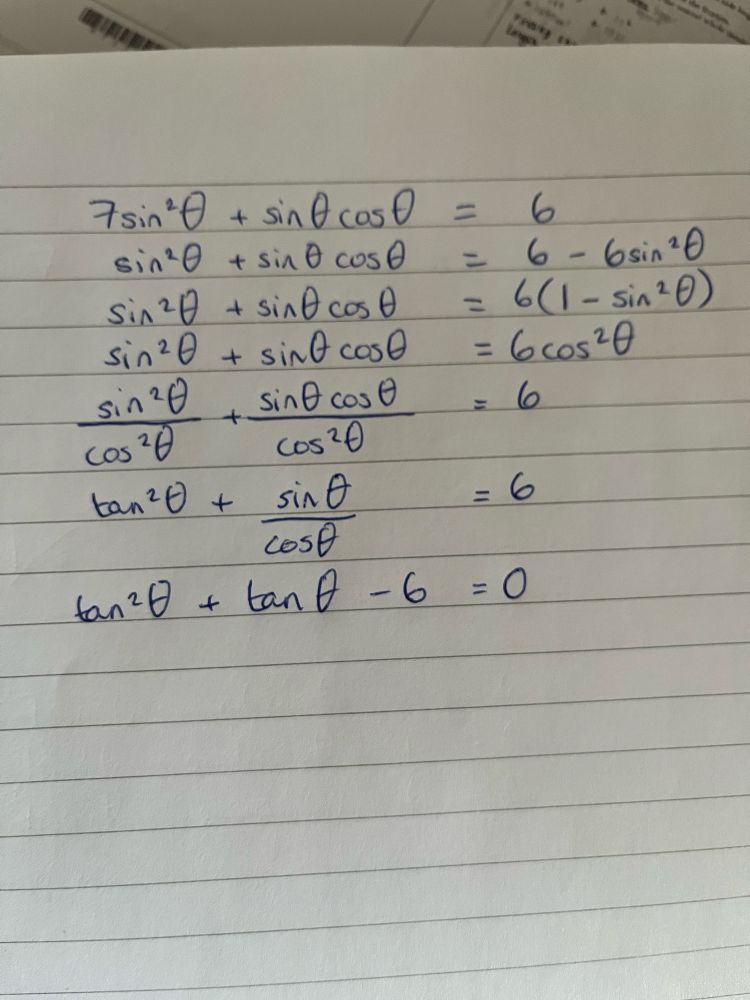 7sin²θ + sinθ cosθ = 6
sin²θ + sinθ cosθ = 6 - 6sin²θ
sin²θ + sinθ cosθ = 6(1 - sin²θ)
sin²θ + sinθ cosθ = 6cos²θ
sin²θ/cos²θ + sinθ cosθ/cos²θ = 6
tan²θ + sinθ/cosθ = 6
tan²θ + tanθ - 6 = 0